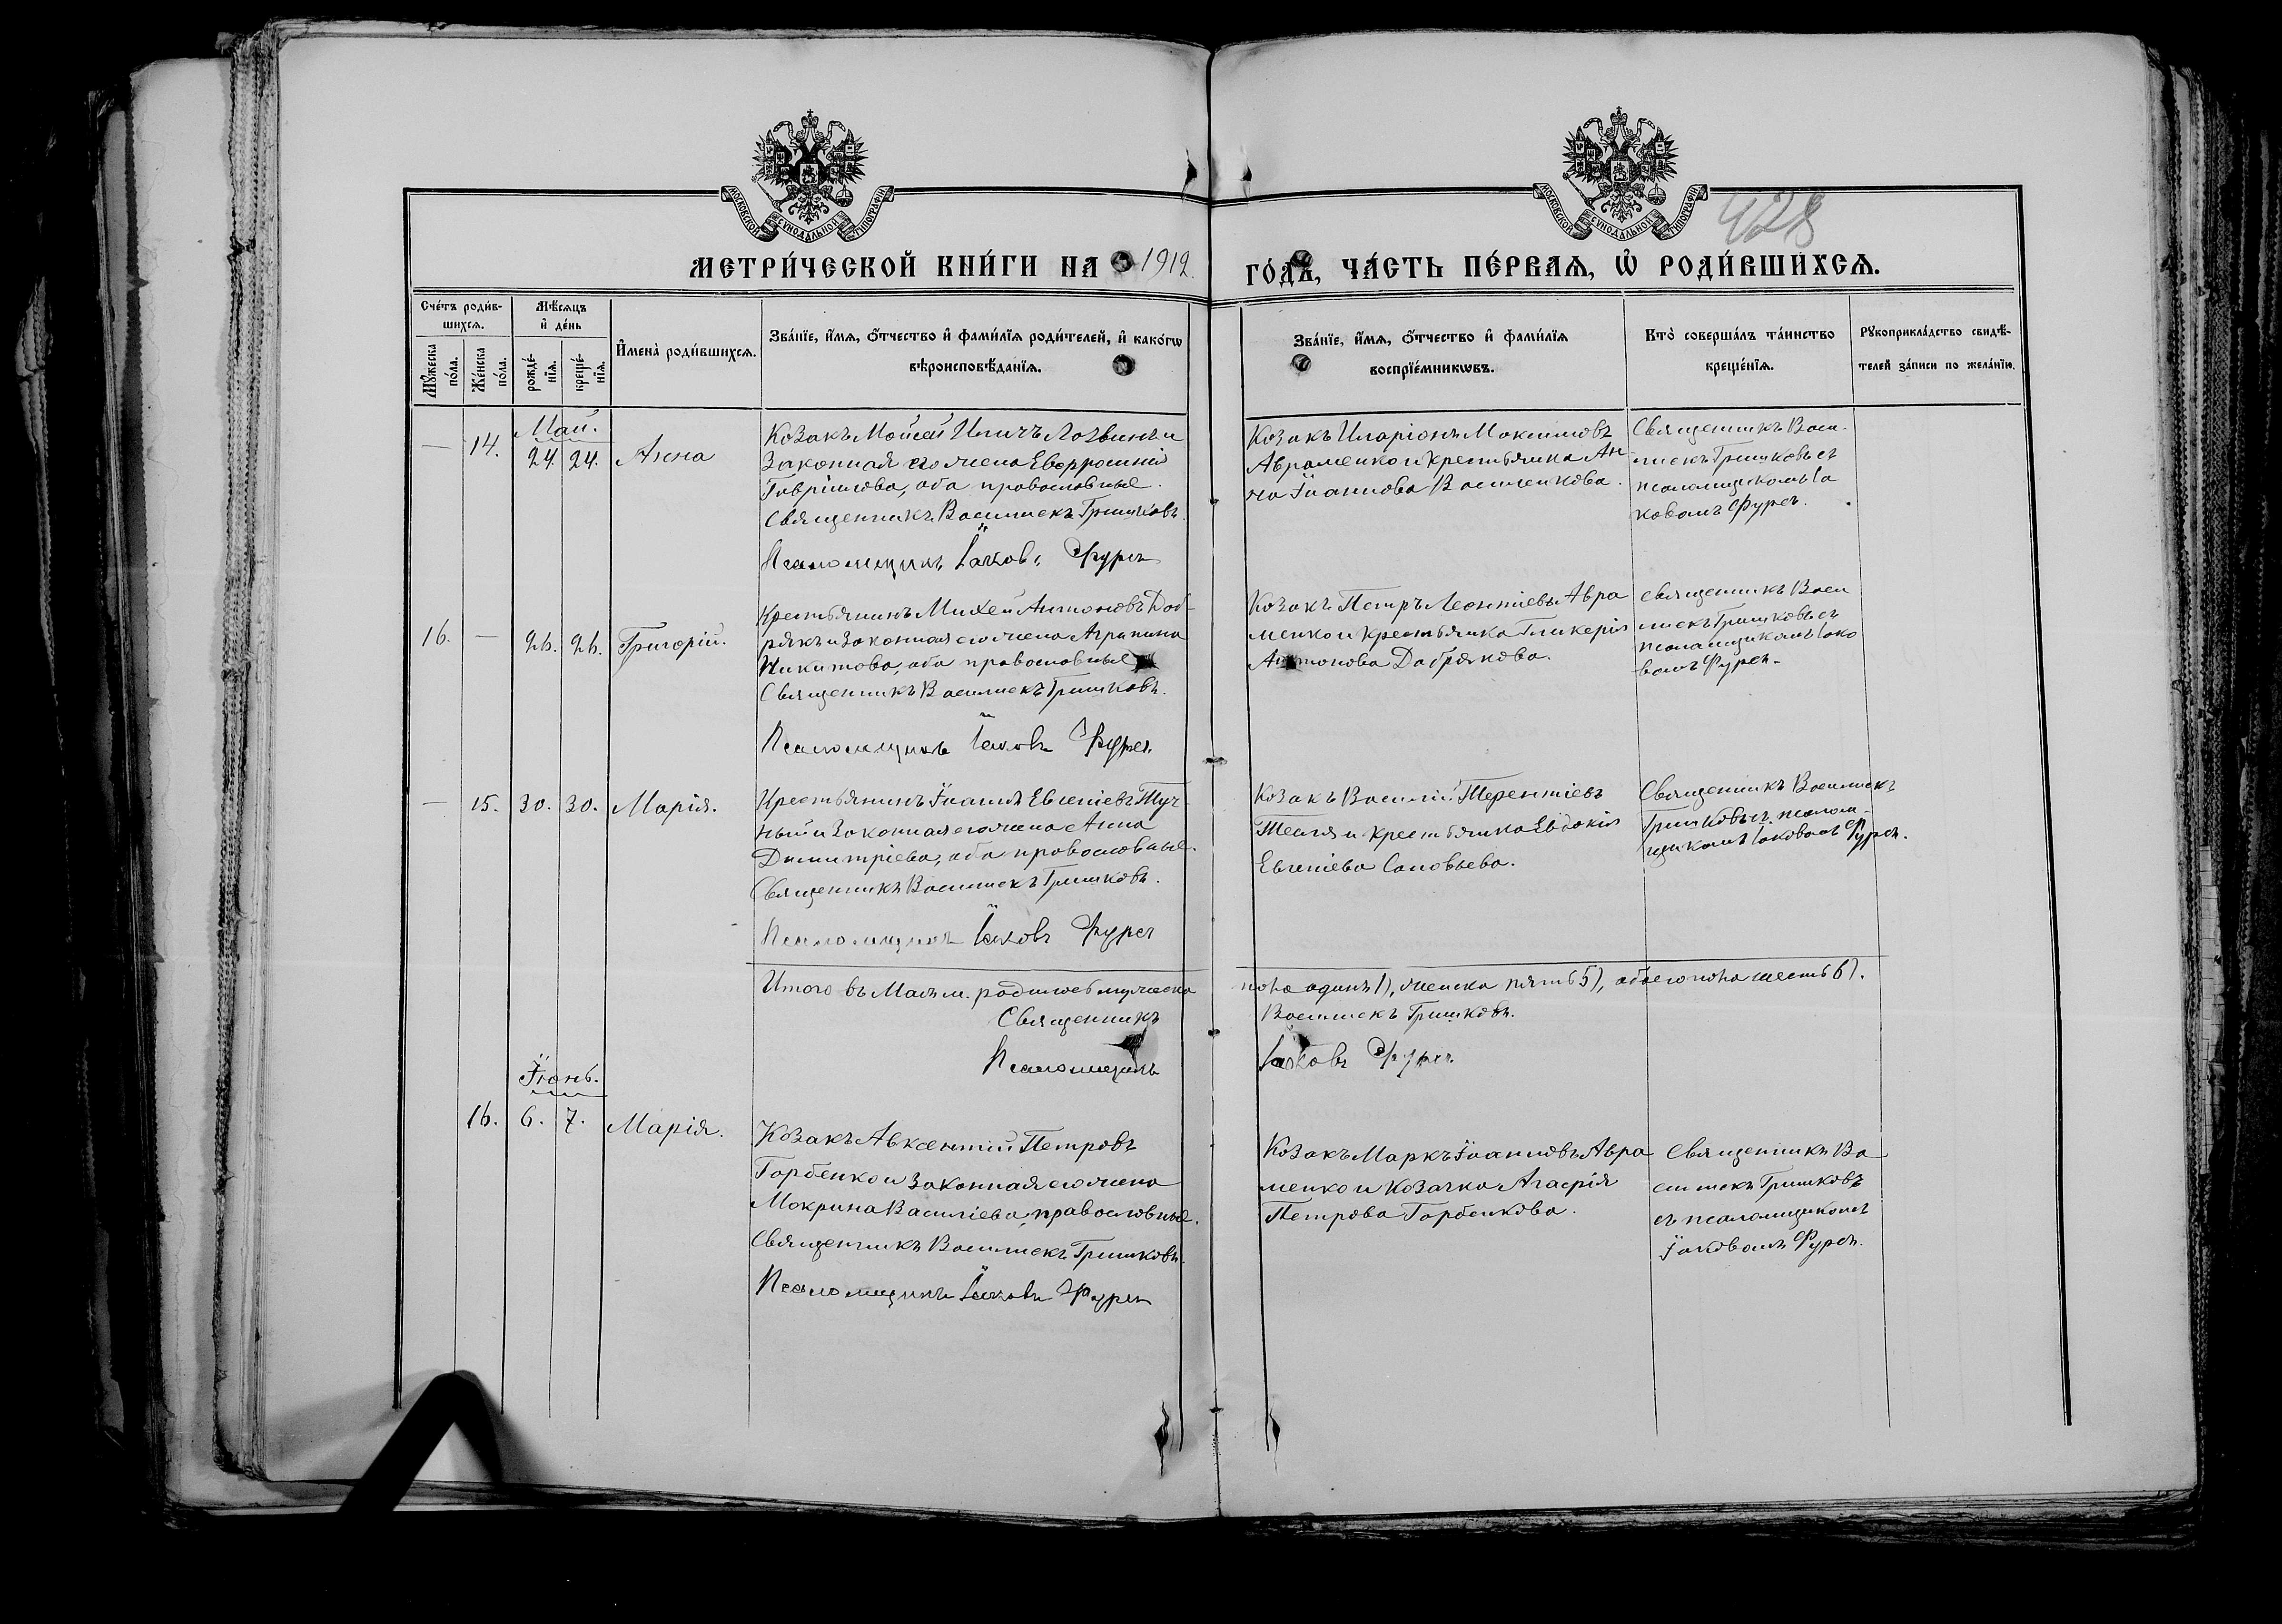 МОСКОВСКОЙ СѴНОДАЛЬНОЙ ТИПОГРАФІИ
МОСКОВСКОЙ СѴНОДАЛЬНОЙ ТИПОГРАФІИ
428
МЕТРИ́ЧЕСКОЙ КНИ́ГИ НА 1912. ГО́ДЪ, ЧА́СТЬ ПЕ́РВАѦ, Ѡ҆ РОДИ́ВШИХСѦ.
Сче́тъ роди́в-
шихсѧ.
Мꙋ́жеска по́ла.
Же́нска по́ла.
Мѣ́сѧцъ
и҆ де́нь
рожде́-
нїѧ.
креще́-
нїѧ.
И҆мена̀ роди́вшихсѧ.
Зва́нїе, и҆́мѧ, ѻ҆́тчество и҆ фами́лїѧ роди́телей, и҆ како́гѡ
вѣроисповѣ́данїѧ.
Зва́нїе, и҆́мѧ, ѻ҆́тчество и҆ фами́лїѧ
воспрїе́мникѡвъ.
Кто̀ соверша́лъ та́инство
креще́нїѧ.
Рꙋкоприкла́дство свидѣ́-
телей за́писи по жела́нїю.
Май.
— 14. 24. 24. Анна
Козакъ Мойсей Иличъ Логвинъ и
Законная его жена Евфросинія
Гавріилова, оба православные.
Священникъ Василискъ Гришковъ.
Псаломщикъ Іаковъ Фурса
Козакъ Иларіонъ Максимовъ
Авраменко и крестьянка Ан-
на Іоаннова Василенкова.
Священникъ Васи-
лискъ Гришковъ съ
псаломщикомъ Іа
ковомъ Фурса.
16. — 26. 26. Григорій.
Крестьянинъ Михей Антоновъ Доб-
рякъ и Законная его жена Агрипина
Никитова, оба православные
Священникъ Василискъ Гришковъ.
Псаломщикъ Іаковъ Фурса
Козакъ Петръ Леонтіевъ Авра
менко и крестьянка Гликерія
Антонова Добрякова.
Священникъ Васи
лискъ Гришковъ съ
псаломщикомъ Іако
вомъ Фурса.
— 15. 30. 30. Марія.
Крестьянинъ Іоаннъ Евгеніевъ Туч-
ный и Законная его жена Анна
Димитріева, оба православные.
Священникъ Василискъ Гришковъ.
Псаломщикъ Іаковъ Фурса
Козакъ Василій Терентіевъ
Тесля и крестьянка Евдокія
Евгеніева Соловьева.
Священникъ Василискъ
Гришковъ съ псалом-
щикомъ Іаковомъ Фурса.
Итого въ Маѣ м. родилось мужеска пола одинъ 1), женска пять 5), обоего пола шесть 6).
Священникъ Василискъ Гришковъ.
Псаломщикъ Іаковъ Фурса
Іюнь.
16. 6. 7. Марія.
Козакъ Авксентій Петровъ
Горбенко и Законная его жена
Мокрина Василіева, православные.
Священникъ Василискъ Гришковъ.
Псаломщикъ Іаковъ Фурса
Козакъ Маркъ Іоанновъ Авра
менко и Козачка Агафія
Петрова Горбенкова.
Священникъ Ва
силискъ Гришковъ
съ псаломщикомъ
Іаковомъ Фурса.